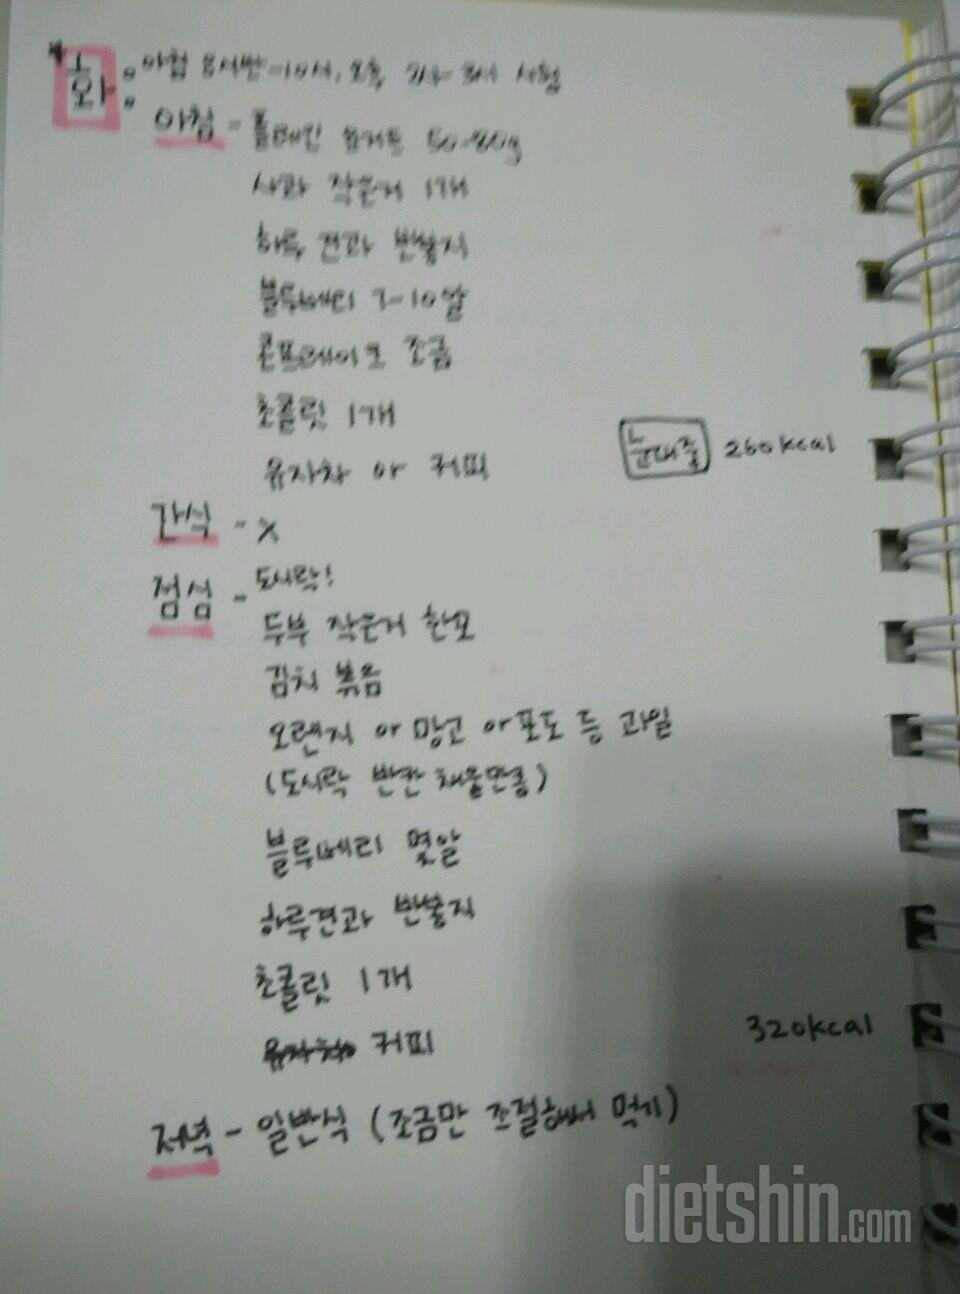 화: 아침 8시반-10시, 오후 2시-3시 시험
아침 - 플레인 요거트 50-80g
사과 작은거 1개
하루 견과 반봉지
블루베리 7-10알
콘프레이크 조금
초콜릿 1개
유자차 or 커피
눈대중 260kcal
간식 - X
점심 - 도시락!
두부 작은거 한모
김치 볶음
오렌지 or 망고 or 포도 등 과일
(도시락 반칸 채울만큼)
블루베리 몇알
하루견과 반봉지
초콜릿 1개
유자차 커피
320kcal
저녁 - 일반식 (조금만 조절해서 먹기)
dietshin.com